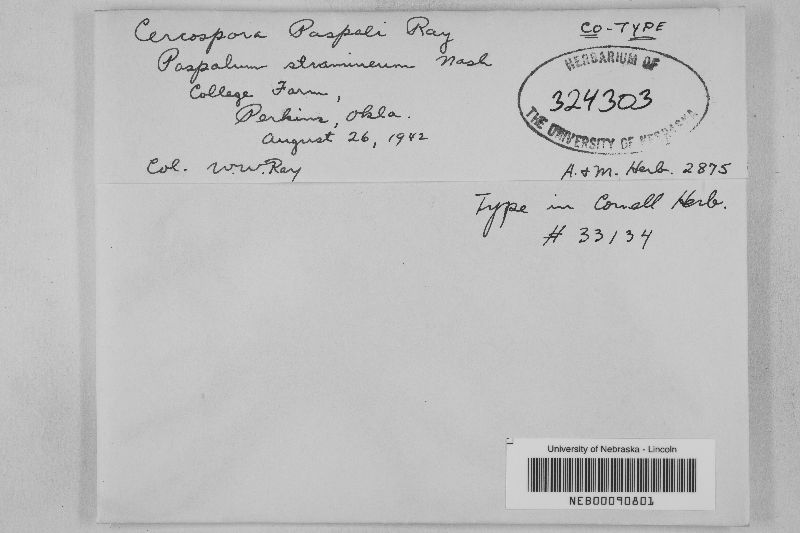 Cercospora Paspali Ray
Paspalum stramineum Nash
College Farm,
Perkins, Okla.
August 26, 1942
Col. W.W. Ray
CO-TYPE
HERBARIUM OF
324303
THE UNIVERSITY OF NEBRASKA
A. & M. Herb. 2875
Type in Cornell Herb.
# 33134
University of Nebraska - Lincoln
NEB00090801